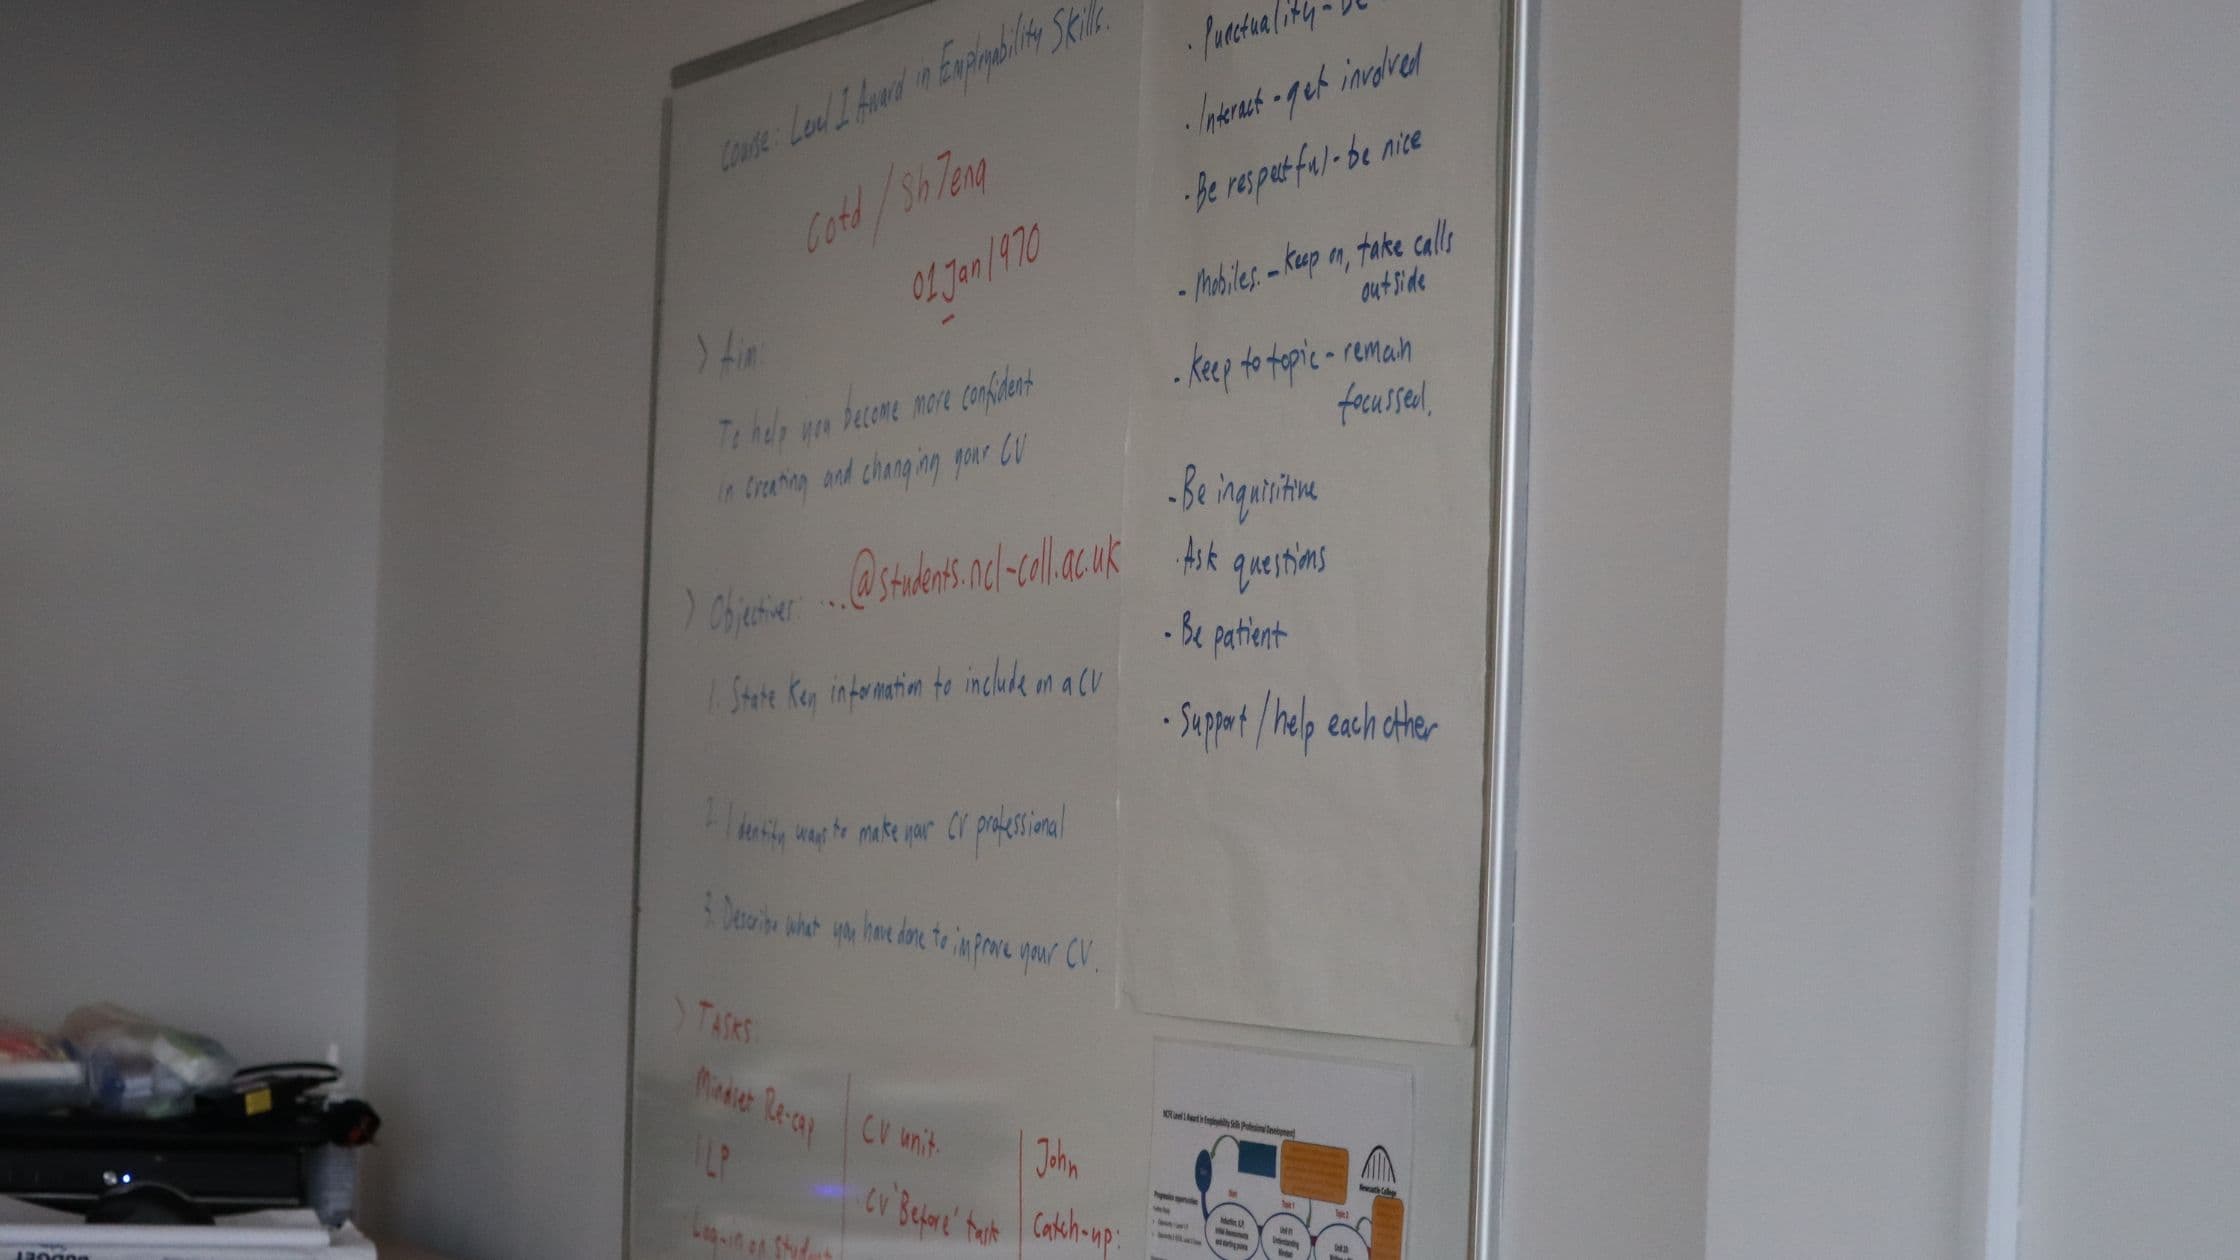 Course: Level 1 Award in Employability Skills.
Cotd / Sh7ena
01Jan1970
> Aim:
To help you become more confident
in creating and changing your CV
> Objectives: ...@students.ncl-coll.ac.uk
1. State Key information to include on a CV
2. Identify ways to make your CV professional
3. Describe what you have done to improve your CV.
> TASKS:
Mindset Re-cap
ILP
Log-in on
CV unit.
CV 'Before' task
John
Catch-up:
· Punctuality - be
· Interact - get involved
· Be respectful - be nice
- Mobiles. - Keep on, take calls
outside
· Keep to topic - remain
focussed.
- Be inquisitive
· Ask questions
- Be patient
· Support / help each other
NCFE Level 1 Award in Employability Skills (Professional Development)
Newcastle College
Progression opportunities
Start
Topic 1
Topic 2
Unit 01
Understanding
Mindset